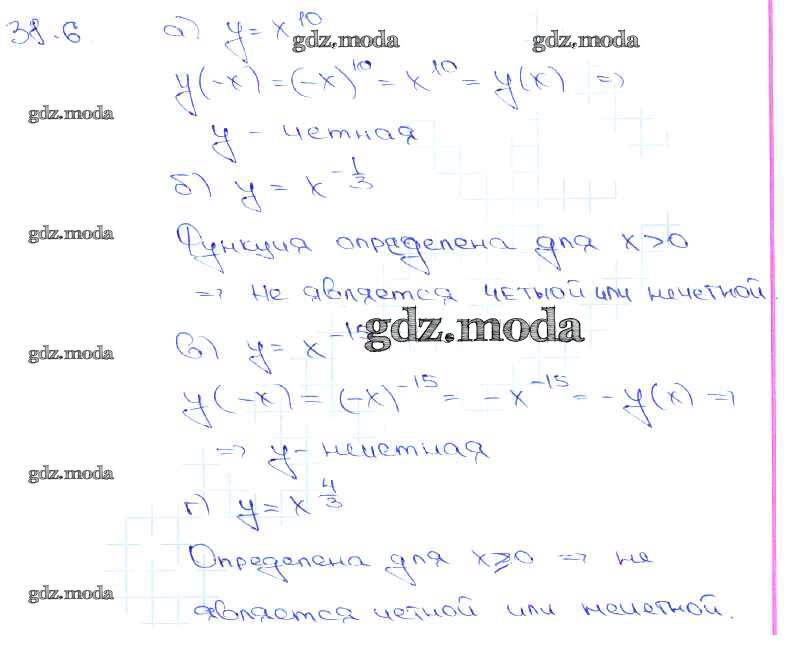 38.6. а) y = x^10
gdz.moda gdz.moda
y(-x) = (-x)^10 = x^10 = y(x) =>
gdz.moda
y - четная
б) y = x^(-1/3)
gdz.moda
Функция определена для x>0
=> не является четной или нечетной.
gdz.moda
в) y = x^-15
gdz.moda
y(-x) = (-x)^-15 = -x^-15 = -y(x) =>
=> y - нечетная
gdz.moda
г) y = x^(4/3)
Определена для x⩾0 => не
gdz.moda
является четной или нечетной.